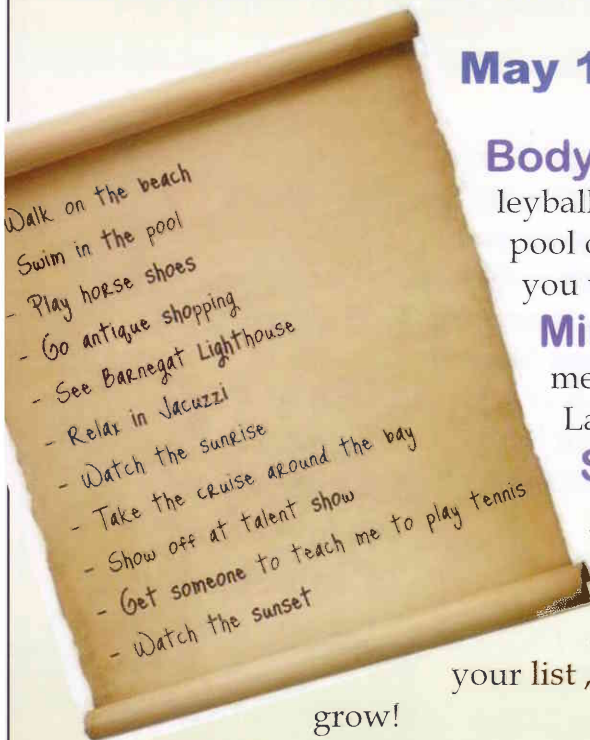 Walk on the beach
Swim in the pool
- Play horse shoes
- Go antique shopping
- See Barnegat Lighthouse
- Relax in Jacuzzi
- Watch the sunrise
- Take the cruise around the bay
- Show off at talent show
- Get someone to teach me to play tennis
- Watch the sunset
May 1
Body
leyball
pool
you
Mi
me
La
S
your list ,
grow!